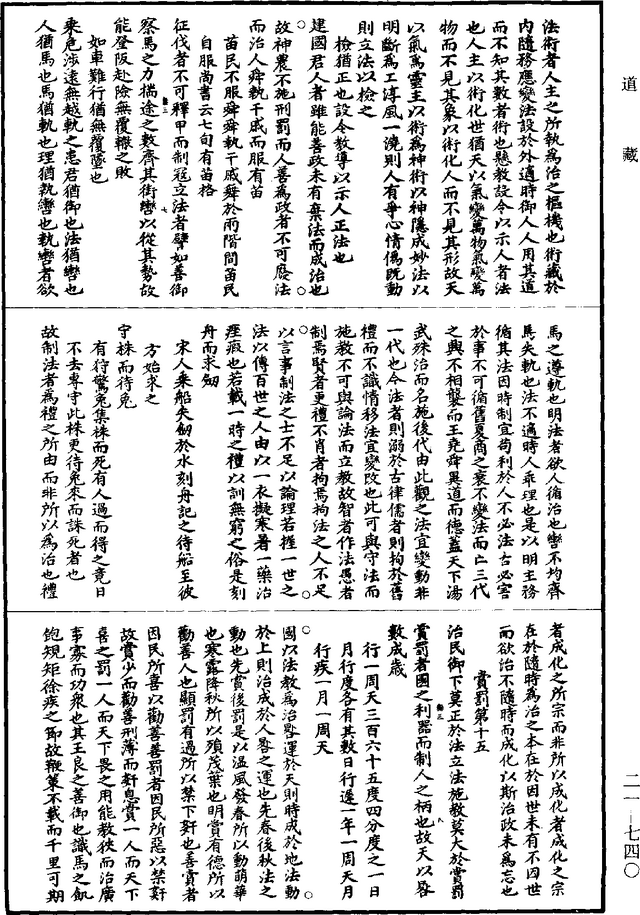 道藏
法術者人主之所執為治之樞機也術藏於
內隨務應變法設於外適時御人人用其道
而不知其數者術也懸教設令以示人者法
也人主以術化世猶天以氣變萬物氣變萬
物而不見其象以術化人而不見其形故天
以氣為靈主以術為神術以神隱成妙法以
明斷為工淳風一澆則人有爭心情偽既動
則立法以檢之
檢猶正也設令教導以示人正法也
建國君人者雖能善政未有棄法而成治也
故神農不施刑罰而人善為政者不可廢法
而治人舜執干戚而服有苗
苗民不服舜舜執干戚舞於兩階間苗民
自服尚書云七旬有苗格
征伐者不可釋甲而制寇立法者譬如善御
察馬之力揣途之數齊其銜轡以從其勢故
能登阪赴險無覆轍之敗
如車難行猶無覆墜也
乘危涉遠無越軌之患君猶御也法猶轡也
人猶馬也馬猶軌也理猶執轡也執轡者欲
馬之遵軌也明法者欲人循治也轡不均齊
馬失軌也法不適時人乖理也是以明主務
循其法因時制宜苟利於人不必法古必害
於事不可循舊夏商之衰不變法而亡三代
之興不相襲而王堯舜異道而德蓋天下湯
武殊治而名施後代由此觀之法宜變動非
一代也今法者則溺於古律儒者則拘於舊
禮而不識情移法宜變改也此可與守法而
施教不可與論法而立教故智者作法愚者
制焉賢者更禮不肖者拘焉拘法之人不足
以言事制法之士不足以論理若握一世之
法以傳百世之人由以一衣擬寒暑一藥治
痤瘕也若載一時之禮以訓無窮之俗是刻
舟而求劍
宋人乘船失劍於水刻舟記之待船至彼
方始求之
守株而待兔
有狩驚兔集株而死有人過而得之竟日
不去專守此株更待兔來而誅死者也
故制法者為禮之所由而非所以為治也禮
者成化之所宗而非所以成化者成化之宗
在於隨時為治之本在於因世未有不因世
而欲治不隨時而成化以斯治政未為忘也
賞罰第十五
治民御下莫正於法立法施教莫大於賞罰
賞罰者國之利器而制人之柄也故天以晷
數成歲
行一周天三百六十五度四分度之一日
月行度各有其數日行遲一年一周天月
行疾一月一周天
國以法教為治晷運於天則時成於地法動
於上則治成於人晷之運也先春後秋法之
動也先賞後罰是以溫風發春所以動萌華
也寒露降秋所以殞茂葉也明賞有德所以
勸善人也顯罰有過所以禁下姦也善賞者
因民所喜以勸善善罰者因民所惡以禁姦
故賞少而勸善刑薄而姦息賞一人而天下
喜之罰一人而天下畏之用能教狹而治廣
事寡而功眾也其王良之善御也識馬之飢
飽規矩徐疾之節故鞭策不載而千里可期
二一—七四〇